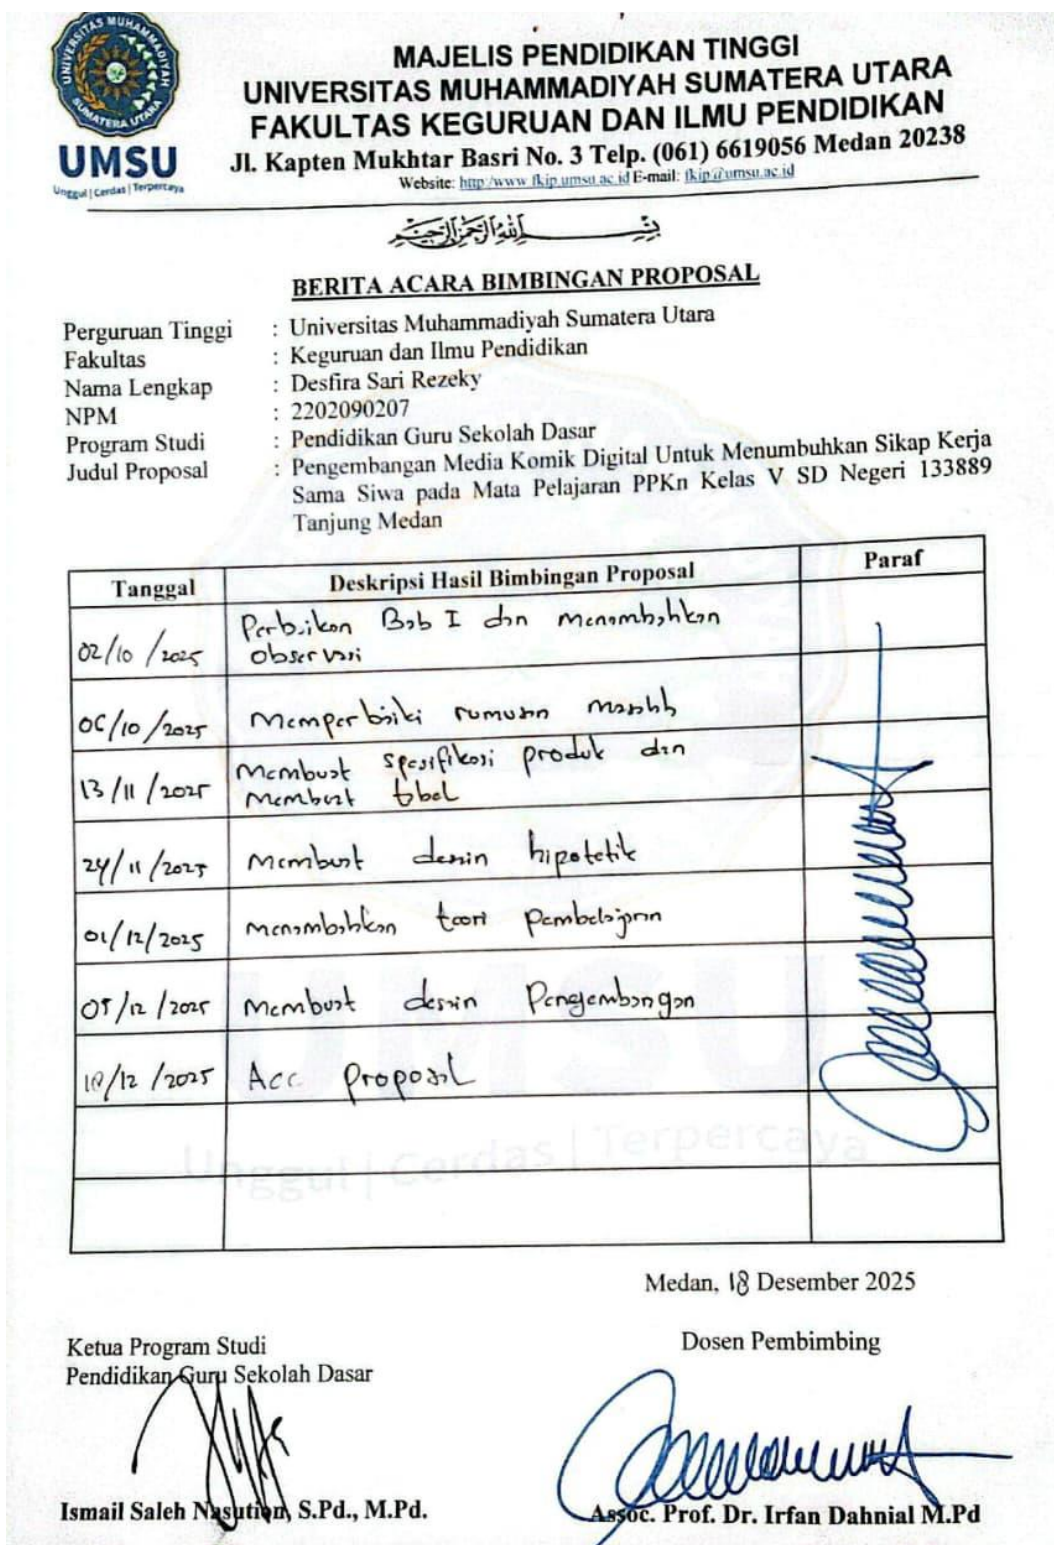 UNIVERSITAS MUHAMMADIYAH
SUMATERA UTARA
UMSU
Unggul | Cerdas | Terpercaya
MAJELIS PENDIDIKAN TINGGI
UNIVERSITAS MUHAMMADIYAH SUMATERA UTARA
FAKULTAS KEGURUAN DAN ILMU PENDIDIKAN
Jl. Kapten Mukhtar Basri No. 3 Telp. (061) 6619056 Medan 20238
Website: http:/www.fkip.umsu.ac.id E-mail: fkip@umsu.ac.id
بِسْمِ اللَّهِ الرَّحْمَنِ الرَّحِيمِ
BERITA ACARA BIMBINGAN PROPOSAL
Perguruan Tinggi : Universitas Muhammadiyah Sumatera Utara
Fakultas : Keguruan dan Ilmu Pendidikan
Nama Lengkap : Desfira Sari Rezeky
NPM : 2202090207
Program Studi : Pendidikan Guru Sekolah Dasar
Judul Proposal : Pengembangan Media Komik Digital Untuk Menumbuhkan Sikap Kerja
Sama Siwa pada Mata Pelajaran PPKn Kelas V SD Negeri 133889
Tanjung Medan
Tanggal Deskripsi Hasil Bimbingan Proposal Paraf
02/10/2025 Perbaikan Bab I dan menambahkan
observasi
06/10/2025 Memperbaiki rumusan masalah
13/11/2025 Membuat spesifikasi produk dan
Membuat tabel
24/11/2025 Membuat desain hipotetik
01/12/2025 Menambahkan teori Pembelajaran
05/12/2025 Membuat desain Pengembangan
18/12/2025 Acc proposal
UMSU
Unggul | Cerdas | Terpercaya
Medan, 18 Desember 2025
Ketua Program Studi
Pendidikan Guru Sekolah Dasar
Dosen Pembimbing
Ismail Saleh Nasution, S.Pd., M.Pd.
Assoc. Prof. Dr. Irfan Dahnial M.Pd